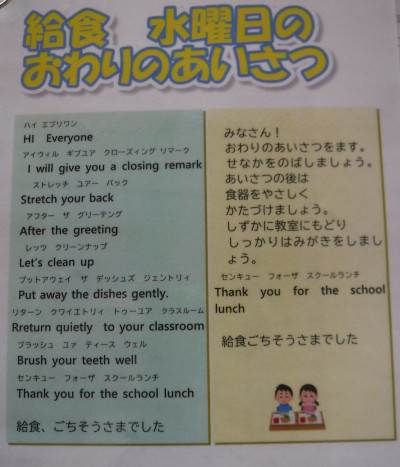 給食　水曜日の
おわりのあいさつ
ハイ エブリワン
HI Everyone
アイウィル ギブユア クロージィング リマーク
I will give you a closing remark
ストレッチ ユアー バック
Stretch your back
アフター ザ グリーテング
After the greeting
レッツ クリーンナップ
Let's clean up
プットアウェイ ザ デッシュズ ジェントリィ
Put away the dishes gently.
リターン クワイエトリィ トゥーユア クラスルーム
Rreturn quietly to your classroom
ブラッシュ ユァ ティース ウェル
Brush your teeth well
センキュー フォーザ スクールランチ
Thank you for the school lunch
給食、ごちそうさまでした
みなさん！
おわりのあいさつをます。
せなかをのばしましょう。
あいさつの後は
食器をやさしく
かたづけましょう。
しずかに教室にもどり
しっかりはみがきをしまし
ょう。
センキュー フォーザ スクールランチ
Thank you for the school
lunch
給食ごちそうさまでした